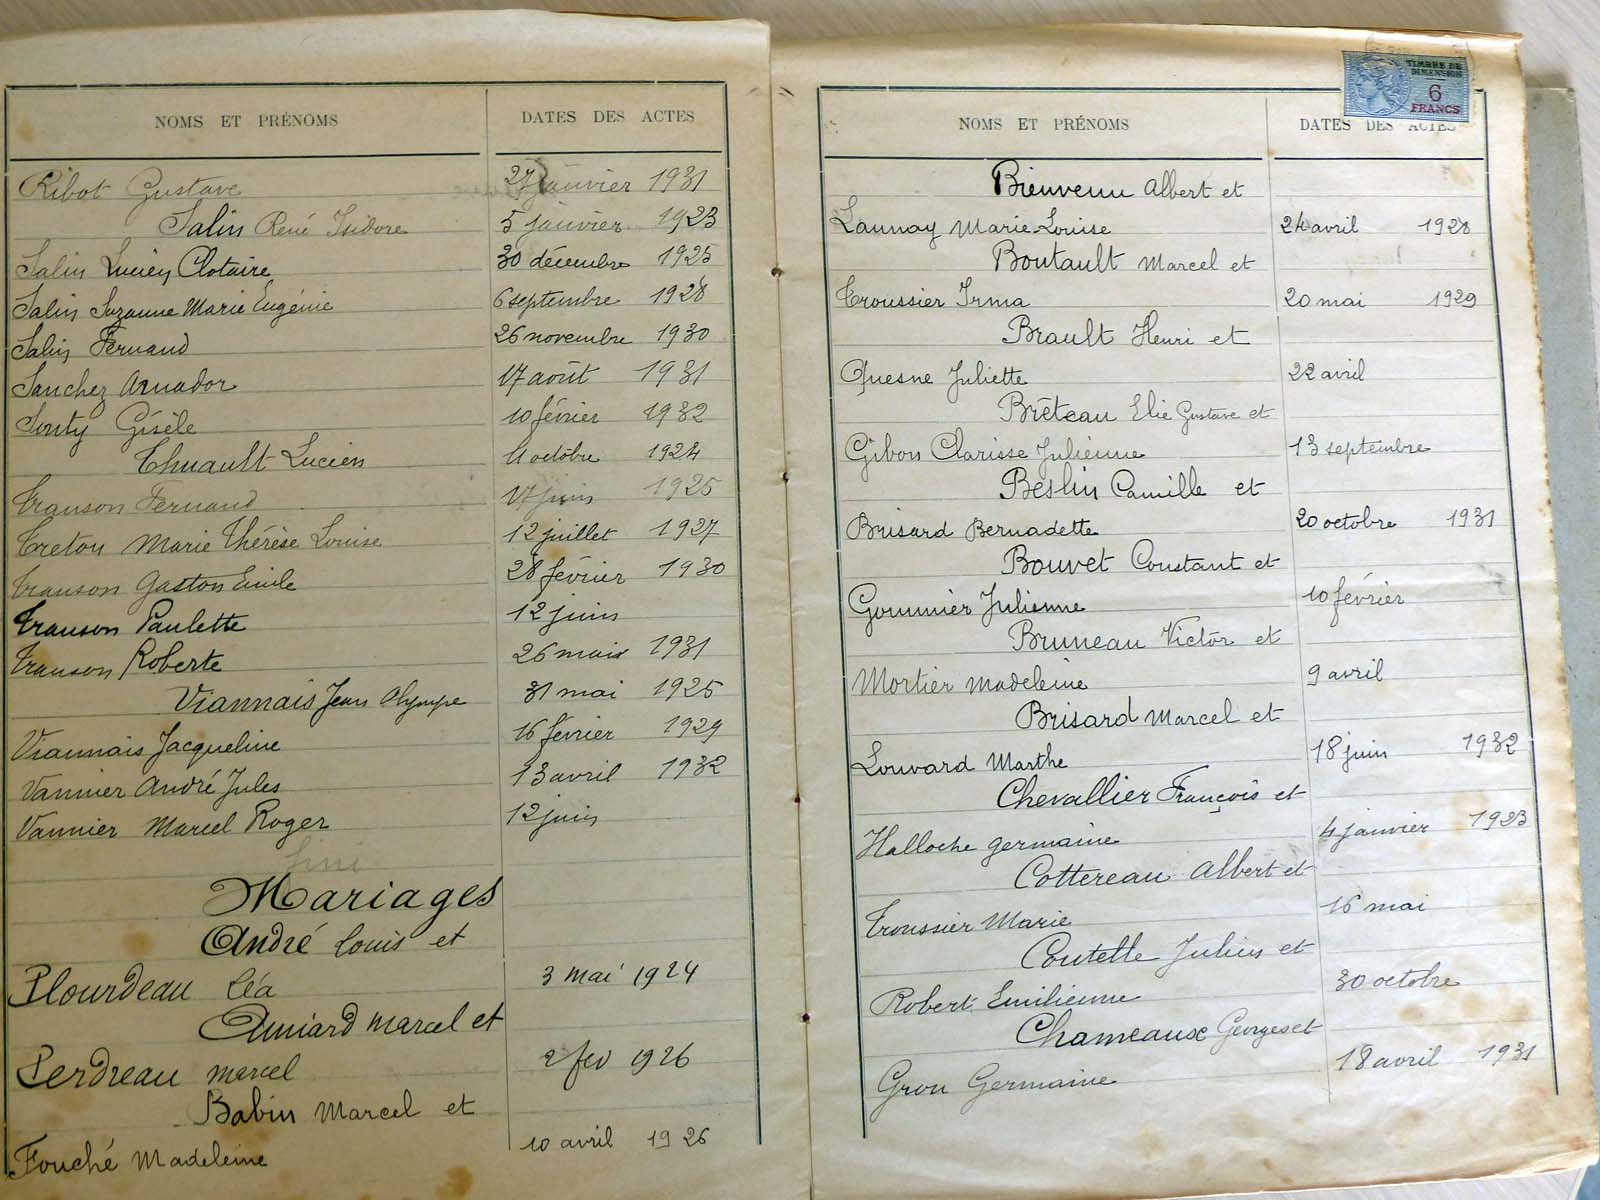 NOMS ET PRÉNOMS DATES DES ACTES
Ribot Gustave 27 janvier 1931
Salin René Isidore 5 janvier 1923
Salin Lucien Clotaire 30 décembre 1925
Salin Suzanne Marie Eugénie 6 septembre 1928
Salin Fernand 26 novembre 1930
Sanchez Amador 17 août 1931
Souty Gisèle 10 février 1932
Thuault Lucien 11 octobre 1924
Transon Fernand 17 juin 1925
Treton Marie Thérèse Louise 12 juillet 1927
Transon Gaston Emile 28 février 1930
Transon Paulette 12 juin
Transon Roberte 26 mars 1931
Viannais Jean Olympe 31 mai 1925
Viannais Jacqueline 16 février 1929
Vannier André Jules 13 avril 1932
Vannier Marcel Roger 12 juin
fini
Mariages
André Louis et
Plourdeau Léa 3 mai 1924
Amiard Marcel et
Perdreau Marcel 2 fev 1926
Babin Marcel et
Fouché Madeleine 10 avril 1926
TIMBRE DE
DIMENSION
6
FRANCS
NOMS ET PRÉNOMS DATES DES ACTES
Bienvenu Albert et
Launay Marie Louise 24 avril 1928
Boutault Marcel et
Troussier Irma 20 mai 1929
Brault Henri et
Quesne Juliette 22 avril
Brêteau Elie Gustave et
Gibon Clarisse Julienne 13 septembre
Beslin Camille et
Brisard Bernadette 20 octobre 1931
Bouvet Constant et
Gommier Julienne 10 février
Bruneau Victor et
Mortier Madeleine 9 avril
Brisard Marcel et
Louvard Marthe 18 juin 1932
Chevallier François et
Halloche Germaine 4 janvier 1923
Cottereau Albert et
Troussier Marie 16 mai
Coutelle Julien et
Robert Emilienne 30 octobre
Chameaux Georges et
Grou Germaine 18 avril 1931